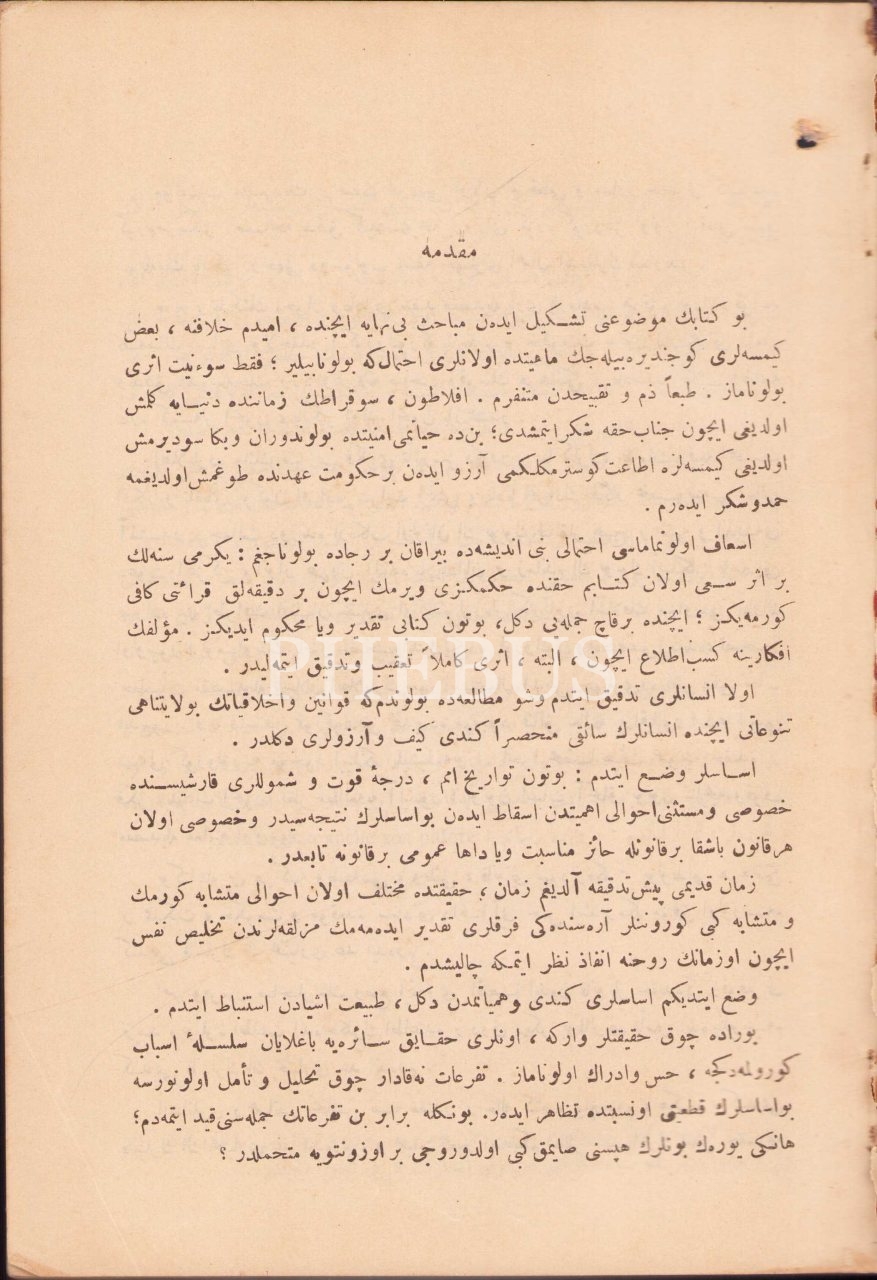 مقدمه
بو كتابك موضوعنى تشـكيل ايده‌ن مباحث بى‌نهايه ايچنده ، اميدم خلافنه ، بعض
كيمسه‌لرى كوجنديره‌بيله‌جك ماهيتده اولانلرى احتمال‌كه بولونابيلير ؛ فقط سوءنيت اثرى
بولوناماز . طبعاً ذم و تقبيحدن متنفرم . افلاطون ، سوقراطك زماننده دنيـايه كلمش
اولديغى ايچون جناب‌حقه شكرايتمشدى؛ بن‌ده حياتمى‌امنيتده بولوندوران وبكا سوديرمش
اولديغى كيمسه‌لره اطاعت‌كوسترمكلكمى آرزو ايده‌ن برحكومت عهدنده طوغمش‌اولديغمه
حمدوشكر ايده‌رم .
اسعاف اولونماماسى احتمالى بنى انديشه‌ده بيراقان بر رجاده بولوناجغم : يكرمى سنه‌لك
بر اثر سـعى اولان كتـابم حقنده حكمكزى ويرمك ايچون بر دقيقه‌لق قرائتى كافى
كورمه‌يكز ؛ ايچنده برقاچ جمله‌يى دكل، بوتون كتابى تقدير ويا محكوم ايديكز . مؤلفك
افكارينه كسب‌اطلاع ايچون ، البته ، اثرى كاملاً تعقيب وتدقيق ايتمه‌ليدر .
اولا انسانلرى تدقيق ايتدم وشو مطالعه‌ده بولوندم‌كه قوانين واخلاقياتك بولايتناهى
تنوعاتى ايچنده انسانلرك سائقى منحصراً كندى كيف وآرزولرى دكلدر .
اسـاسلر وضـع ايتدم : بوتون تواريخ امم ، درجۀ قوت و شموللرى قارشيسـنده
خصوصى ومستثنى‌احوالى اهميتدن اسقاط ايده‌ن بواساسلرك نتيجه‌سيدر وخصوصى اولان
هرقانون باشقا برقانونله حائز مناسبت ويا داها عمومى برقانونه تابعدر .
زمان قديمى پيش‌تدقيقه آلديغم زمان ، حقيقتده مختلف اولان احوالى متشابه كورمك
و متشابه كبى كوروننلر آره‌سنده‌كى فرقلرى تقدير ايده‌مه‌مك مزلقه‌لرندن تخليص نفس
ايچون اوزمانك روحنه انفاذ نظر ايتمكه چاليشدم .
وضع ايتديكم اساسلرى كندى وهمياتمدن دكل، طبيعت اشيادن استنباط ايتدم .
بوراده چوق حقيقتلر واركه ، اونلرى حقـايق سـائره‌يه باغلايان سلسـلۀ اسباب
كورولمه‌دكجه ، حس وادراك اولوناماز . تفرعات نه‌قادار چوق تحليل و تأمل اولونورسه
بواساسلرك قطعيتى اونسبتده تظاهر ايده‌ر. بونكله برابر بن تفرعاتك جمله‌سنى‌قيد ايتمه‌دم؛
هانكى يوره‌ك بونلرك هپسنى صايمق‌كبى اولدوروجى بر اوزونتويه متحملدر ؟
PHEBUS